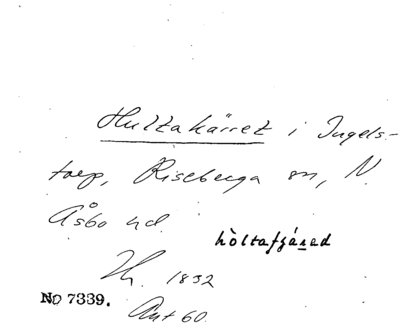 Hultakärret i Ingels-
torp, Riseberga sn, N.
Åsbo hd.
hòltafjáred
Th. 1832
No 7339.
Ant 60.